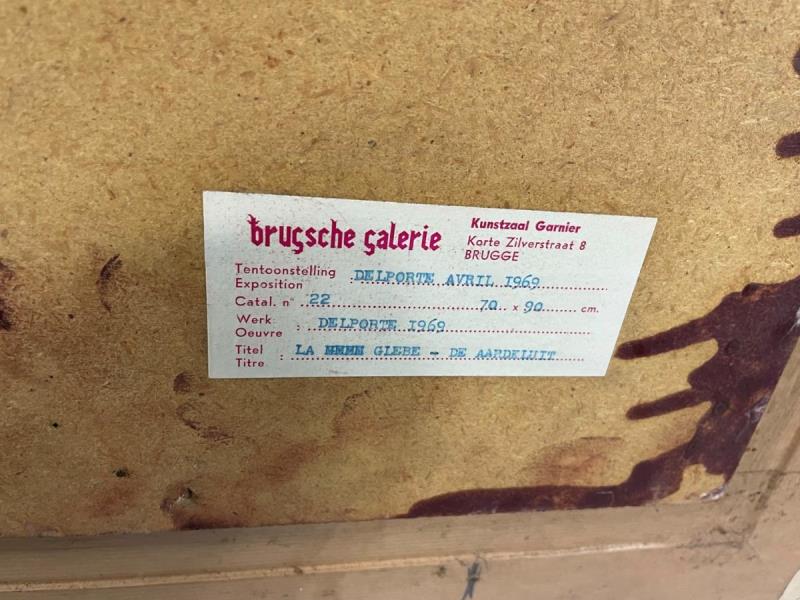 brugsche galerie
Kunstzaal Garnier
Korte Zilverstraat 8
BRUGGE
Tentoonstelling
Exposition DELPORTE AVRIL 1969
Catal. n° 22 70 x 90 cm.
Werk
Oeuvre : DELPORTE 1969
Titel
Titre : LA GLEBE - DE AARDKLUIT